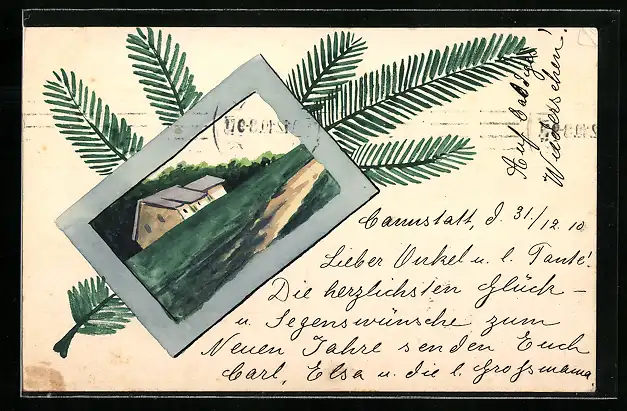 Cannstatt, d. 31/12.10
Lieber Onkel u. l. Tante!
Die herzlichsten Glück-
u. Segenswünsche zum
Neuen Jahre senden Euch
Carl, Elsa u. die l. Grossmama
Auf baldiges
Wiedersehen!